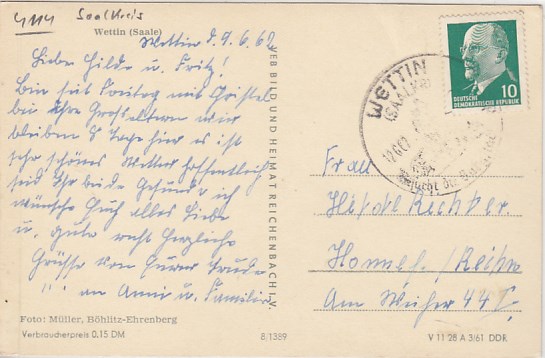 4114 Saalkreis
Wettin (Saale)
Wettin d. 9.6.62
Liebe Hilde u. Fritz!
Bin seit Sonntag mit Christel
bei ihre Großeltern wir
bleiben 8 Tage hier es ist
sehr schönes Wetter hoffentlich
seid Ihr beide Gesund ich
wünsche Euch alles Liebe
u. gute recht herzliche
Grüsse von Eurer Trude
" " an Anni u. Familie
VEB BILD UND HEIMAT REICHENBACH I. V.
WETTIN
(SAALKR)
10
DEUTSCHE
DEMOKRATISCHE REPUBLIK
Frau
Hilde
Am 44
Foto: Müller, Böhlitz-Ehrenberg
Verbraucherpreis 0,15 DM
8/1389
V 11 28 A 3/61 DDR